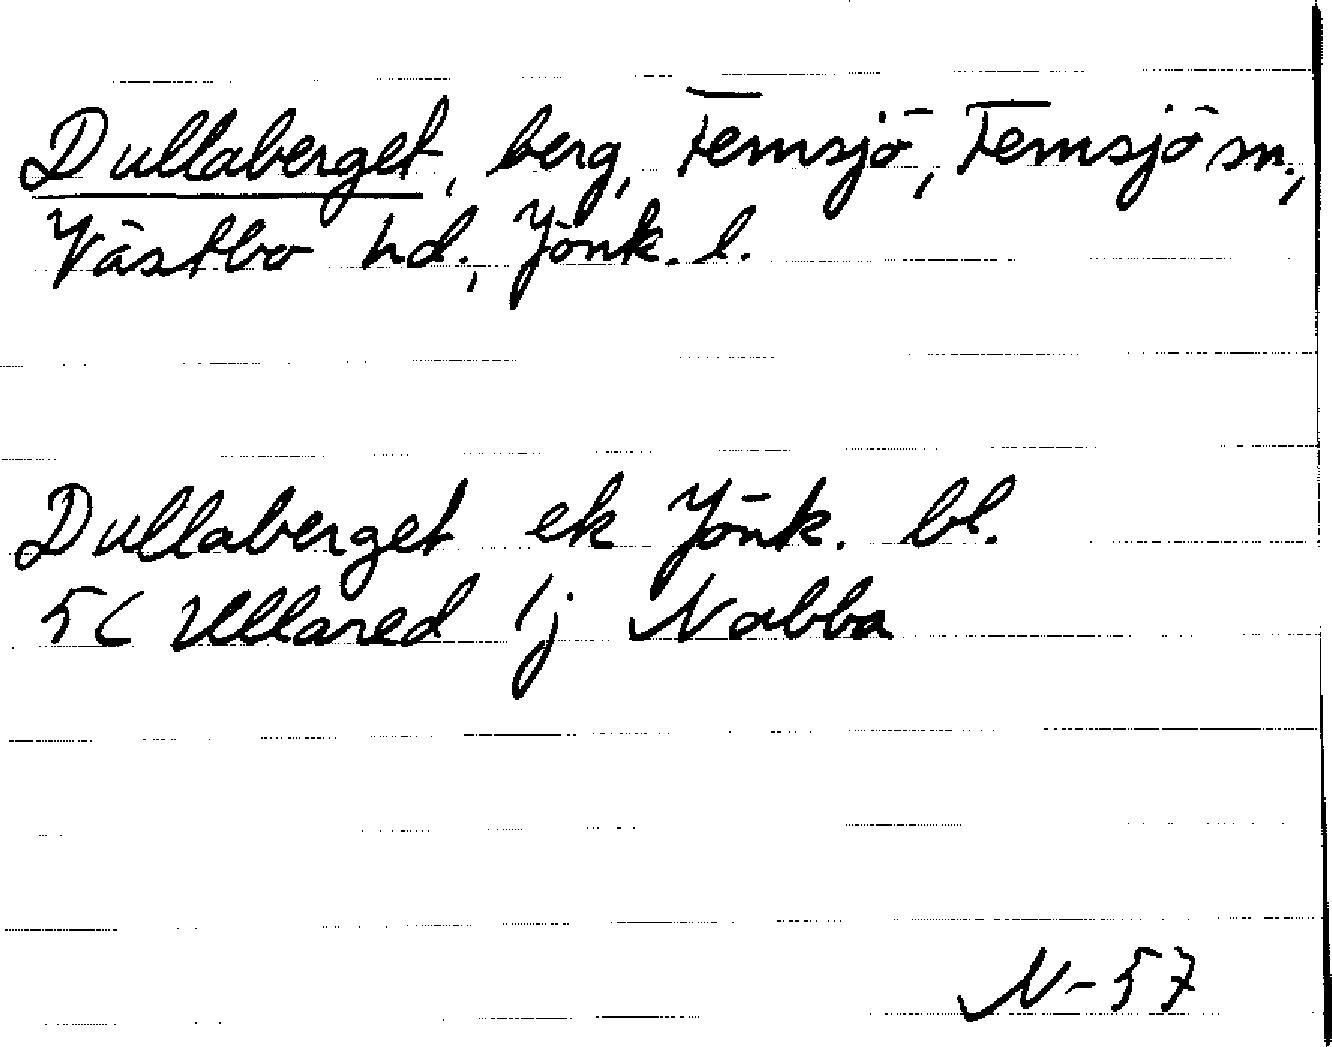 Dullaberget, berg, Femsjö, Femsjö sn.,
Västbo hd., Jönk. l.
Dullaberget ek Jönk. bl.
5C Ullared 1j Nabba
N-57